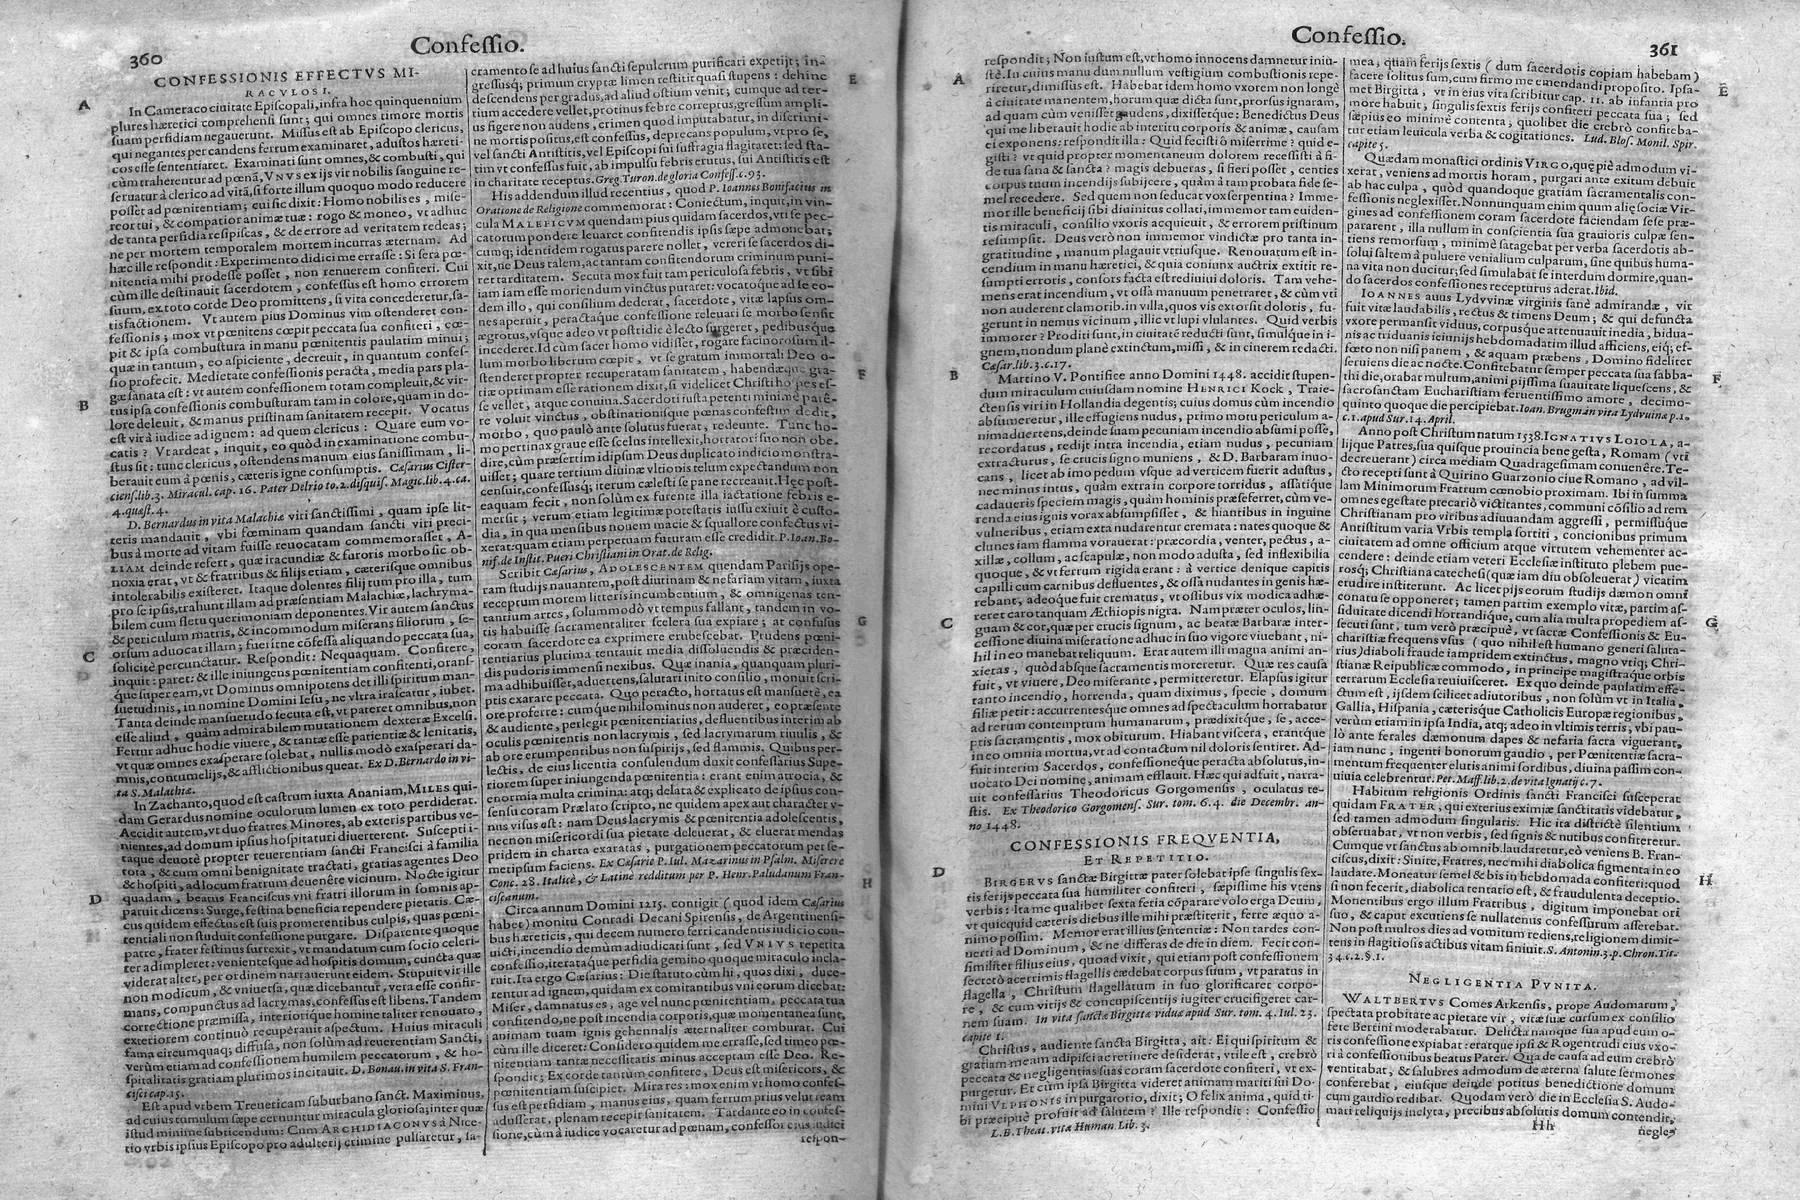 360
Confessio.
CONFESSIONIS EFFECTVS MI-
RACVLOSI.
In Cameraco ciuitate Episcopali, infra hoc quinquennium
plures hæretici comprehensi sunt; qui omnes timore mortis
suam perfidiam negauerunt. Missus est ab Episcopo clericus,
qui negantes per candens ferrum examinaret, adustos hæreti-
cos esse sententiaret. Examinati sunt omnes, & combusti, qui
cùm traherentur ad pœnã, VNVS ex ijs vir nobilis sanguine re-
seruatur à clerico ad vitã, si forte illum quoquo modo reducere
posset ad pœnitentiam; cui sic dixit: Homo nobilis es, mise-
reor tui, & compatior animæ tuæ: rogo & moneo, vt adhuc
de tanta perfidia resipiscas, & de errore ad veritatem redeas;
ne per mortem temporalem mortem incurras æternam. Ad
hæc ille respondit: Experimento didici me errasse: Si sera pœ-
nitentia mihi prodesse posset, non renuerem confiteri. Cui
cùm ille destinauit sacerdotem, confessus est homo errorem
suum, ex toto corde Deo promittens, si vita concederetur, sa-
tisfactionem. Vt autem pius Dominus vim ostenderet con-
fessionis; mox vt pœnitens cœpit peccata sua confiteri, cœ-
pit & ipsa combustura in manu pœnitentis paulatim minui;
quæ in tantum, eo aspiciente, decreuit, in quantum confes-
sio profecit. Medietate confessionis peracta, media pars pla-
gæ sanata est: vt autem confessionem totam compleuit, & vir-
tus ipsa confessionis combusturam tam in colore, quam in do-
lore deleuit, & manus pristinam sanitatem recepit. Vocatus
est vir à iudice ad ignem: ad quem clericus: Quare eum vo-
catis? Vt ardeat, inquit, eo quòd in examinatione combu-
stus sit: tunc clericus, ostendens manum eius sanissimam, li-
berauit eum à pœnis, cæteris igne consumptis. Cæsarius Cister-
ciens. lib. 3. Miracul. cap. 16. Pater Delrio to. 2. disquis. Magic. lib. 4. ca.
4. quæst. 4.
D. Bernardus in vita Malachiæ viri sanctissimi, quam ipse lit-
teris mandauit, vbi fœminam quandam sancti viri preci-
bus à morte ad vitam fuisse reuocatam commemorasset, A-
LIAM deinde refert, quæ iracundiæ & furoris morbo sic ob-
noxia erat, vt & fratribus & filijs etiam, cæterisque omnibus
intolerabilis existeret. Itaque dolentes filij tum pro illa, tum
pro se ipsis, trahunt illam ad præsentiam Malachiæ, lachryma-
bilem cum fletu querimoniam deponentes. Vir autem sanctus
& periculum matris, & incommodum miserans filiorum, se-
orsum aduocat illam; fuerítne cõfessa aliquando peccata sua,
solicitè percunctatur. Respondit: Nequaquam. Confitere,
inquit: paret: & ille iniungens pœnitentiam confitenti, orans-
que super eam, vt Dominus omnipotens det illi spiritum man-
suetudinis, in nomine Domini Iesu, ne vltra irascatur, iubet.
Tanta deinde mansuetudo secuta est, vt pateret omnibus, non
esse aliud, quàm admirabilem mutationem dexteræ Excelsi.
Fertur adhuc hodie viuere, & tantæ esse patientiæ & lenitatis,
vt quæ omnes exasperare solebat, nullis modò exasperari da-
mnis, contumelijs, & afflictionibus queat. Ex D. Bernardo in vi-
ta S. Malachiæ.
In Zachanto, quod est castrum iuxta Ananiam, MILES qui-
dam Gerardus nomine oculorum lumen ex toto perdiderat.
Accidit autem, vt duo fratres Minores, ab exteris partibus ve-
nientes, ad domum ipsius hospitaturi diuerterent. Suscepti i-
taque deuotè propter reuerentiam sancti Francisci à familia
tota, & cum omni benignitate tractati, gratias agentes Deo
& hospiti, ad locum fratrum deuenêre vicinum. Nocte igitur
quadam, beatus Franciscus vni fratri illorum in somnis ap-
paruit dicens: Surge, festina beneficia rependere pietatis. Cæ-
cus quidem effectus est suis promerentibus culpis, quas pœni-
tentiali non studuit confessione purgare. Disparente quoque
patre, frater festinus surrexit, vt mandatum cum socio celeri-
ter adimpleret: venientesque ad hospitis domum, cuncta quæ
viderat alter, per ordinem narrauerunt eidem. Stupuit vir ille
non modicum, & vniuersa, quæ dicebantur, vera esse confir-
mans, compunctus ad lacrymas, confessus est libens. Tandem
correctione præmissa, interiorique homine taliter renouato,
exteriorem continuò recuperauit aspectum. Huius miraculi
fama circumquaq; diffusa, non solùm ad reuerentiam Sancti,
verùm etiam ad confessionem humilem peccatorum, & ho-
spitalitatis gratiam plurimos incitauit. D. Bonau. in vita S. Fran-
cisci cap. 15.
Est apud vrbem Treuericam suburbano sanct. Maximinus,
ad cuius tumulum sæpe cernuntur miracula gloriosa; inter quæ
istud minime subticendum: Cum ARCHIDIACONVS à Nice-
tio vrbis ipsius Episcopo pro adulterij crimine pulsaretur, sa-
A
B
C
D
cramento se ad huius sancti sepulcrum purificari expetijt; in-
gressusq; primum cryptæ limen restitit quasi stupens: dehinc
descendens per gradus, ad aliud ostium venit; cumque ad ter-
tium accedere vellet, protinus febre correptus, gressum ampli-
us figere non audens, crimen quod imputabatur, in discrimi-
ne mortis positus, est confessus, deprecans populum, vt pro se,
vel sancti Antistitis, vel Episcopi sui suffragia flagitaret: sed sta-
tim vt confessus fuit, ab impulsu febris erutus, sui Antistitis est
in charitate receptus. Greg. Turon. de gloria Confess. c. 93.
His addendum illud recentius, quod P. Ioannes Bonifacius in
Oratione de Religione commemorat: Coniectum, inquit, in vin-
cula MALEFICVM quendam pius quidam sacerdos, vti se pec-
catorum pondere leuaret confitendis ipsis sæpe admonebat;
cumq; identidem rogatus parere nollet, vereri se sacerdos di-
xit, ne Deus talem, ac tantam confitendorum criminum puni-
ret tarditatem. Secuta mox fuit tam periculosa febris, vt sibi
iam iam esse moriendum vinctus putaret: vocatoque ad se eo-
dem illo, qui consilium dederat, sacerdote, vitæ lapsus om-
nes aperuit, peractaque confessione releuari se morbo sensit
ægrotus, vsque adeo vt postridie è lecto surgeret, pedibusque
incederet. Id cum sacer homo vidisset, rogare facinorosum il-
lum morbo liberum cœpit, vt se gratum immortali Deo o-
stenderet propter recuperatam sanitatem, habendæque gra-
tiæ optimam esse rationem dixit, si videlicet Christi hospes es-
se vellet, atque conuiua. Sacerdoti iusta petenti minimè parê-
re voluit vinctus, obstinationisque pœnas confestim dedit,
morbo, quo paulò ante solutus fuerat, redeunte. Tunc ho-
mo pertinax graue esse scelus intellexit, hortatori suo non obe-
dire, cùm præsertim idipsum Deus duplicato indicio monstra-
uisset; quare tertium diuinæ vltionis telum expectandum non
censuit, confessusq; iterum cælesti se pane recreauit. Hęc post-
eaquam fecit, non solùm ex furente illa iactatione febris e-
mersit; verum etiam legitimæ potestatis iussu exiuit è custo-
dia, in qua mensibus nouem macie & squallore confectus vi-
xerat: quam etiam perpetuam futuram esse credidit. P. Ioan. Bo-
nif. de Instit. Pueri Christiani in Orat. de Relig.
Scribit Cæsarius, ADOLESCENTEM quendam Parisijs ope-
ram studijs nauantem, post diutinam & nefariam vitam, iuxta
receptum morem litteris incumbentium, & omnigenas ten-
tantium artes, solummodò vt tempus fallant, tandem in vo-
tis habuisse sacramentaliter scelera sua expiare; at confusus
coram sacerdote ea exprimere erubescebat. Prudens pœni-
tentiarius plurima tentauit media dissoluendis & præciden-
dis pudoris immensi nexibus. Quæ inania, quanquam pluri-
ma adhibuisset, aduertens, salutari inito consilio, monuit scri-
ptis exarare peccata. Quo peracto, hortatus est mansuetè, ea
ore proferre: cumque nihilominus non auderet, eo præsente
& audiente, perlegit pœnitentiarius, defluentibus interim ab
oculis pœnitentis non lacrymis, sed lacrymarum riuulis, &
ab ore erumpentibus non suspirijs, sed flammis. Quibus per-
lectis, de eius licentia consulendum duxit confessarius Supe-
riorem super iniungenda pœnitentia: erant enim atrocia, &
enormia multa crimina: atq; delata & explicato de ipsius con-
sensu coram Prælato scripto, ne quidem apex aut character v-
nus visus est: nam Deus lacrymis & pœnitentia adolescentis,
necnon misericordi sua pietate deleuerat, & eluerat mendas
pridem in charta exaratas, purgamentum peccatorum per se-
metipsum faciens. Ex Cæsario P. Iul. Mazarinus in Psalm. Miserere
Conc. 28. Italicè, & Latinè redditum per P. Henr. Paludanum Fran-
ciscanum.
Circa annum Domini 1215. contigit (quod idem Cæsarius
habet) monitu Conradi Decani Spirensis, de Argentinensi-
bus hæreticis, qui decem numero ferri candentis iudicio con-
uicti, incendio demùm adiudicati sunt, sed VNIVS repetita
confessio, iterataque perfidia gemino quoque miraculo incla-
ruit. Ita ergo Cæsarius: Die statuto cùm hi, quos dixi, duce-
rentur ad ignem, quidam ex comitantibus vni eorum dicebat:
Miser, damnatus es, age vel nunc pœnitentiam, peccata tua
confitendo, ne post incendia corporis, quæ momentanea sunt,
animam tuam ignis gehennalis æternaliter comburat. Cui
cùm ille diceret: Considero quidem me errasse, sed timeo pœ-
nitentiam tantæ necessitatis minus acceptam esse Deo. Re-
spondit; Ex corde tantum confitere, Deus est misericors, &
pœnitentiam suscipiet. Mira res: mox enim vt homo confes-
sus est perfidiam, manus eius, quam ferrum prius veluti eam
adusserat, plenam recepit sanitatem. Tardante eo in confes-
sione, cùm à iudice vocaretur ad pœnam, confessor eius iudici
respon-
E
F
G
H
Confessio.
361
respondit; Non iustum est, vt homo innocens damnetur iniu-
stè. In cuius manu dum nullum vestigium combustionis repe-
riretur, dimissus est. Habebat idem homo vxorem non longè
à ciuitate manentem, horum quæ dicta sunt, prorsus ignaram,
ad quam cùm venisset gaudens, dixissetque: Benedictus Deus
qui me liberauit hodie ab interitu corporis & animæ, causam
ei exponens: respondit illa: Quid fecisti ô miserrime? quid e-
gisti? vt quid propter momentaneum dolorem recessisti à fi-
de tua sana & sancta? magis debueras, si fieri posset, centies
corpus tuum incendijs subijcere, quàm à tam probata fide se-
mel recedere. Sed quem non seducat vox serpentina? Imme-
mor ille beneficij sibi diuinitus collati, immemor tam euiden-
tis miraculi, consilio vxoris acquieuit, & errorem pristinum
resumpsit. Deus verò non immemor vindictæ pro tanta in-
gratitudine, manum plagauit vtriusque. Renouatum est in-
cendium in manu hæretici, & quia coniunx auctrix extitit re-
sumpti erroris, consors facta est rediuiui doloris. Tam vehe-
mens erat incendium, vt ossa manuum penetraret, & cùm vti
non auderent clamorib. in villa, quos vis extorsit doloris, fu-
gerunt in nemus vicinum, illic vt lupi vlulantes. Quid verbis
immoror? Proditi sunt, in ciuitatẽ reducti sunt, simulque in i-
gnem, nondum planè extinctum, missi, & in cinerem redacti.
Cæsar. lib. 3. c. 17.
Martino V. Pontifice anno Domini 1448. accidit stupen-
dum miraculum cuiusdam nomine HENRICI Kock, Traie-
ctensis viri in Hollandia degentis; cuius domus cùm incendio
absumeretur, ille effugiens nudus, primo motu periculum a-
nimaduertens, deinde suam pecuniam incendio absumi posse,
recordatus, redijt intra incendia, etiam nudus, pecuniam
extracturus, se crucis signo muniens, & D. Barbaram inuo-
cans, licet ab imo pedum vsque ad verticem fuerit adustus,
nec minus intus, quàm extra in corpore torridus, assatique
cadaueris speciem magis, quàm hominis præseferret, cùm ve-
renda eius ignis vorax absumpsisset, & hiantibus in inguine
vulneribus, etiam exta nudarentur cremata: nates quoque &
clunes iam flamma vorauerat: præcordia, venter, pectus, a-
xillæ, collum, ac scapulæ, non modò adusta, sed inflexibilia
quoque, & vt ferrum rigida erant: à vertice denique capitis
capilli cum carnibus defluentes, & ossa nudantes in genis hæ-
rebant, adeoque fuit crematus, vt ossibus vix modica adhæ-
reret caro tanquam Æthiopis nigra. Nam præter oculos, lin-
guam & cor, quæ per crucis signum, ac beatæ Barbaræ inter-
cessione diuina miseratione adhuc in suo vigore viuebant, ni-
hil in eo manebat reliquum. Erat autem illi magna animi an-
xietas, quòd absque sacramentis moreretur. Quæ res causa
fuit, vt viuere, Deo miserante, permitteretur. Elapsus igitur
tanto incendio, horrenda, quam diximus, specie, domum
filiæ petit: accurrentesque omnes ad spectaculum hortabatur
ad rerum contemptum humanarum, prædixitque, se, acce-
ptis sacramentis, mox obiturum. Hiabant viscera, erantque
in eo omnia mortua, vt ad contactum nil doloris sentiret. Ad-
fuit interim Sacerdos, confessioneque peracta absolutus, in-
uocato Dei nomine, animam efflauit. Hæc qui adfuit, narra-
uit confessarius Theodoricus Gorgomensis, oculatus te-
stis. Ex Theodorico Gorgomens. Sur. tom. 6. 4. die Decembr. an-
no 1448.
CONFESSIONIS FREQVENTIA,
ET REPETITIO.
BIRGERVS sanctæ Birgittæ pater solebat ipse singulis sex-
tis ferijs peccata sua humiliter confiteri, sæpissime his vtens
verbis: Ita me qualibet sexta feria cõparare volo erga Deum,
vt quicquid cæteris diebus ille mihi præstiterit, ferre æquo a-
nimo possim. Memor erat illius sententiæ: Non tardes con-
uerti ad Dominum, & ne differas de die in diem. Fecit con-
similiter filius eius, quoad vixit, qui etiam post confessionem
secretò acerrimis flagellis cædebat corpus suum, vt paratus in
flagella, Christum flagellatum in suo glorificaret corpo-
re, & cum vitijs & concupiscentijs iugiter crucifigeret car-
nem suam. In vita sanctæ Birgittæ viduæ apud Sur. tom. 4. Iul. 23.
capite 1.
Christus, audiente sancta Birgitta, ait: Ei qui spiritum &
gratiam meam adipisci ac retinere desiderat, vtile est, crebrò
peccata & negligentias suas coram sacerdote confiteri, vt ex-
purgetur. Et cum ipsa Birgitta videret animam mariti sui Do-
mini VLPHONIS in purgatorio, dixit; O felix anima, quid ti-
bi præcipuè profuit ad salutem? Ille respondit: Confessio
L. B. Theat. vita Human. Lib. 3.
A
B
C
D
mea, quam ferijs sextis (dum sacerdotis copiam habebam)
facere solitus sum, cum firmo me emendandi proposito. Ipsa-
met Birgitta, vt in eius vita scribitur cap. 11. ab infantia pro
more habuit, singulis sextis ferijs confiteri peccata sua; sed
sæpius eo minimè contenta; quolibet die crebrò confiteba-
tur etiam leuicula verba & cogitationes. Lud. Blos. Monil. Spir.
capite 5.
Quædam monastici ordinis VIRGO, quę piè admodum vi-
xerat, veniens ad mortis horam, purgari ante exitum debuit
ab hac culpa, quòd quandoque gratiam sacramentalis con-
fessionis neglexisset. Nonnunquam enim quum alię sociæ Vir-
gines ad confessionem coram sacerdote faciendam sese præ-
pararent, illa nullum in conscientia sua grauioris culpæ sen-
tiens remorsum, minimè satagebat per verba sacerdotis ab-
solui saltem à puluere venialium culparum, sine quibus huma-
na vita non ducitur; sed simulabat se interdum dormire, quan-
do sacerdos confessiones recepturus aderat. Ibid.
IOANNES auus Lydvvinæ virginis sanè admirandæ, vir
fuit vitæ laudabilis, rectus & timens Deum; & qui defuncta
vxore permansit viduus, corpusque attenuauit inedia, bidua-
nis ac triduanis ieiunijs hebdomadatim illud afficiens, eiq; ef-
fœto non nisi panem, & aquam præbens, Domino fideliter
seruiens die ac nocte. Confitebatur semper peccata sua sabba-
thi die, orabat multum, animi pijssima suauitate liquescens, &
sacrosanctam Eucharistiam feruentissimo amore, decimo-
quinto quoque die percipiebat. Ioan. Brugman in vita Lydvuinæ p. 1.
c. 1. apud Sur. 14. April.
Anno post Christum natum 1538. IGNATIVS LOIOLA, a-
lijque Patres, sua quisque prouincia bene gesta, Romam (vti
decreuerant) circa mediam Quadragesimam conuenêre. Te-
cto recepti sunt à Quirino Guarzonio ciue Romano, ad vil-
lam Minimorum Fratrum cœnobio proximam. Ibi in summa
omnes egestate precariò victitantes, communi cõsilio ad rem
Christianam pro viribus adiuuandam aggressi, permissuque
Antistitum varia Vrbis templa sortiti, concionibus primum
ciuitatem ad omne officium atque virtutem vehementer ac-
cendere: deinde etiam veteri Ecclesiæ instituto plebem pue-
rosq; Christiana catechesi (quæ iam diu obsoleuerat) vicatim
erudire institerunt. Ac licet pijs eorum studijs dæmon omni
conatu se opponeret; tamen partim exemplo vitæ, partim as-
siduitate dicendi hortandique, cum alia multa propediem as-
secuti sunt, tum verò præcipuè, vt sacræ Confessionis & Eu-
charistiæ frequens vsus (quo nihil est humano generi saluta-
rius) diaboli fraude iampridem extinctus, magno vtiq; Chri-
stianæ Reipublicæ commodo, in principe magistraque orbis
terrarum Ecclesia reuiuisceret. Ex quo deinde paulatim effe-
ctum est, ijsdem scilicet adiutoribus, non solùm vt in Italia,
Gallia, Hispania, cæterisque Catholicis Europæ regionibus,
verùm etiam in ipsa India, atq; adeo in vltimis terris, vbi pau-
lò ante ferales dæmonum dapes & nefaria sacra viguerant,
iam nunc, ingenti bonorum gaudio, per Pœnitentiæ sacra-
mentum frequenter elutis animi sordibus, diuina passim con-
uiuia celebrentur. Pet. Maff. lib. 2. de vita Ignatij c. 7.
Habitum religionis Ordinis sancti Francisci susceperat
quidam FRATER, qui exterius eximiæ sanctitatis videbatur,
sed tamen admodum singularis. Hic ita districtè silentium
obseruabat, vt non verbis, sed signis & nutibus confiteretur.
Cumque vt sanctus ab omnib. laudaretur, eò veniens B. Fran-
ciscus, dixit: Sinite, Fratres, nec mihi diabolica figmenta in eo
laudate. Moneatur semel & bis in hebdomada confiteri: quod
si non fecerit, diabolica tentatio est, & fraudulenta deceptio.
Monentibus ergo illum Fratribus, digitum imponebat ori
suo, & caput excutiens se nullatenus confessurum asserebat.
Non post multos dies ad vomitum rediens, religionem dimit-
tens in flagitiosis actibus vitam finiuit. S. Antonin. 3. p. Chron. Tit.
34. c. 2. §. 1.
NEGLIGENTIA PVNITA.
WALTBERTVS Comes Arkensis, prope Audomarum,
spectata probitate ac pietate vir, vitæ suæ cursum ex consilio
fete Bertini moderabatur. Delicta namque sua apud eum o-
ris confessione expiabat: eratque ipsi & Rogentrudi eius vxo-
ri à confessionibus beatus Pater. Qua de causa ad eum crebrò
ventitabat, & salubres admodum de æterna salute sermones
conferebat, eiusque deinde potitus benedictione domum
cum gaudio redibat. Quodam verò die in Ecclesia S. Audo-
mari reliquijs inclyta, precibus absolutis domum contendit,
Hh
negle-
E
F
G
H